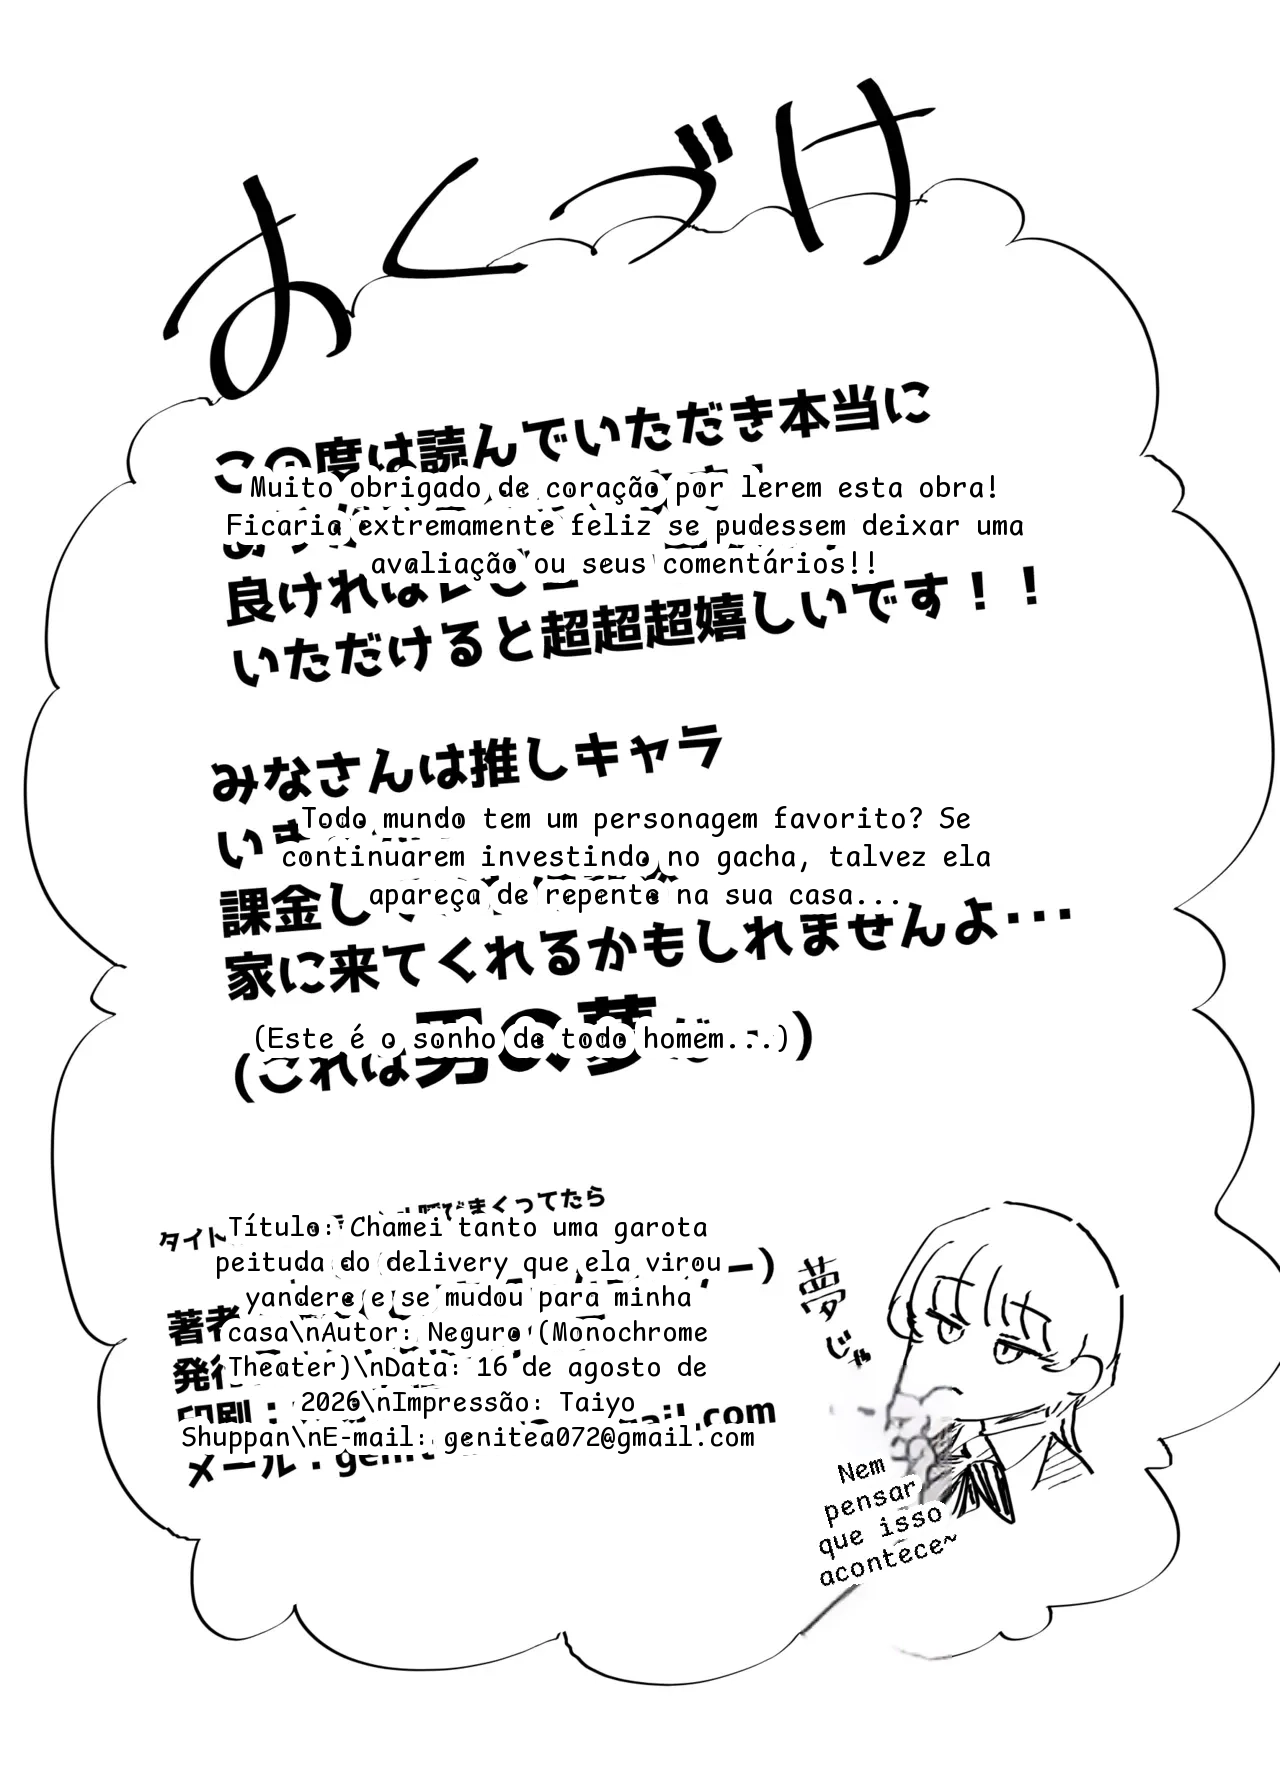 おくづけ
この度は読んでいただき本当に
Muito obrigado de coração por lerem esta obra!
Ficaria extremamente feliz se pudessem deixar uma
avaliação ou seus comentários!!
良ければ
いただけると超超超嬉しいです！！
みなさんは推しキャラ
Todo mundo tem um personagem favorito? Se
continuarem investindo no gacha, talvez ela
課金し
apareça de repente na sua casa...
家に来てくれるかもしれませんよ・・・
(Este é o sonho de todo homem...)
(これは男の夢
タイト びまくってたら
Título: Chamei tanto uma garota
peituda do delivery que ela virou
yandere e se mudou para minha
著者
casa\nAutor: Neguro (Monochrome
発行
Theater)\nData: 16 de agosto de
印刷：
2026\nImpressão: Taiyo
Shuppan\nE-mail: genitea072@gmail.com
メール：
夢
じゃ
Nem
pensar
que isso
acontece~